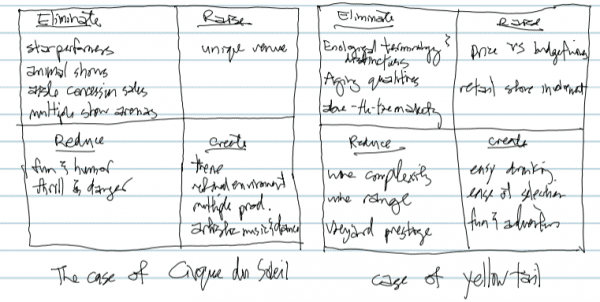 Eliminate
star performers
animal shows
aisle concession sales
multiple show arenas
Raise
unique venue
Reduce
fun & humor
thrill & danger
Create
theme
refined environment
multiple prod.
artistic music & dance
The case of Cirque du Soleil
Eliminate
Enological terminology &
distinctions
Aging qualities
above-the-line marketing
Raise
Price vs budget wines
retail store involvement
Reduce
wine complexity
wine range
vineyard prestige
Create
easy drinking
ease of selection
fun & adventure
case of yellow tail